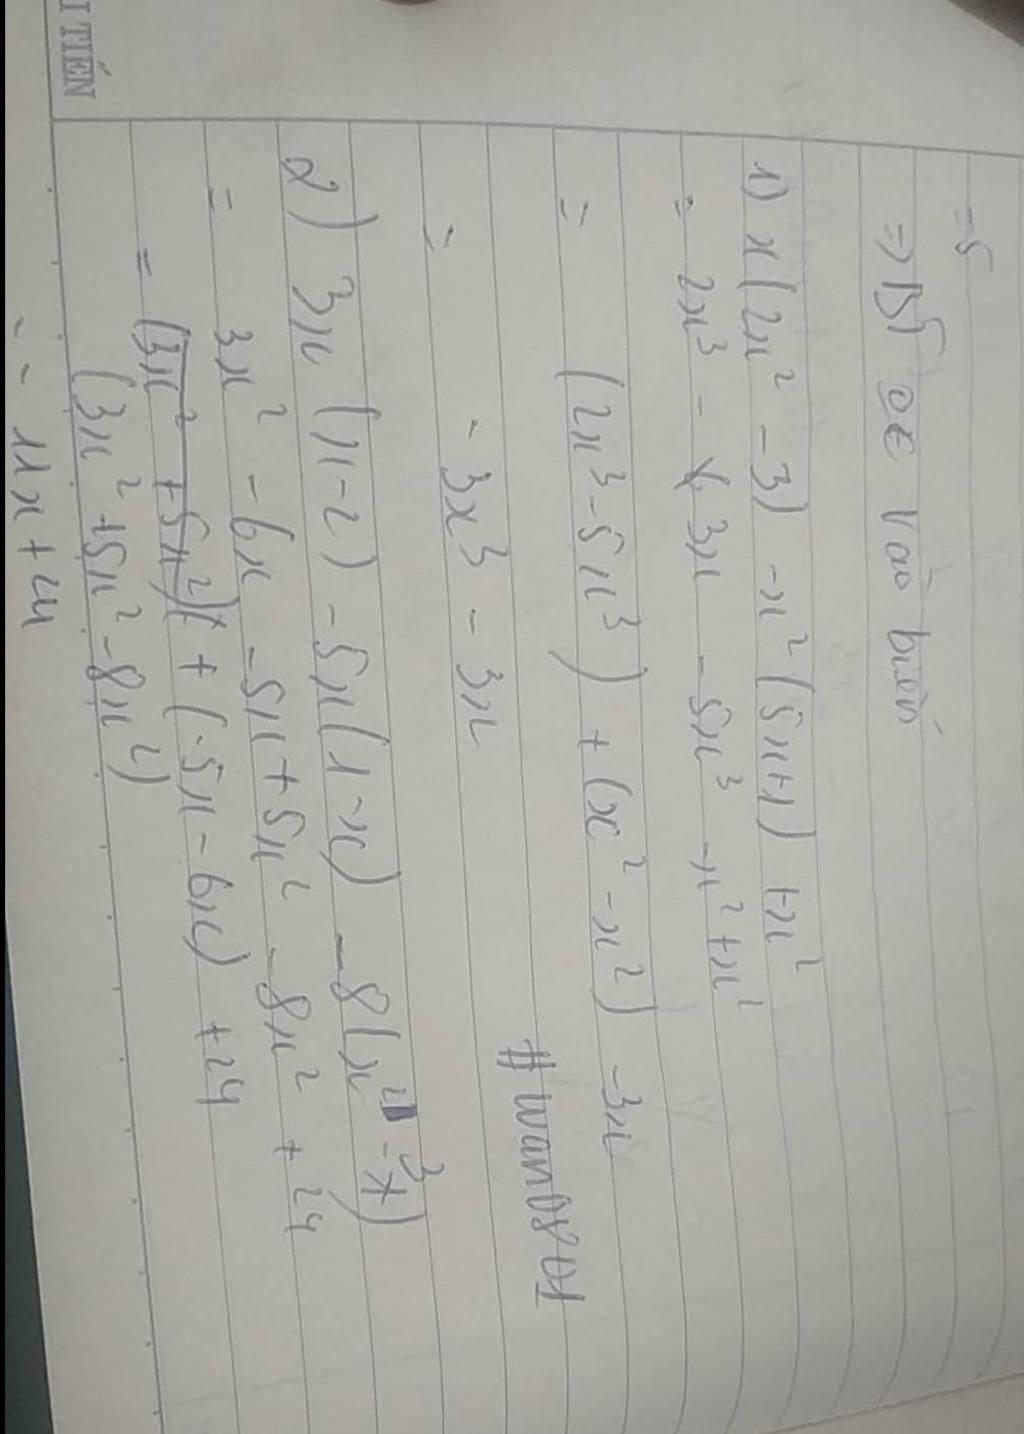 = 5
=> BT 0€ vào biến
1) x(2x² - 3) - x²(5x+1) + x²
= 2x³ - 3x - 5x³ - x² + x²
= (2x³ - 5x³) + (x² - x²) - 3x
= - 3x³ - 3x
2) 3x (x-2) - 5x(1-x) - 8(x² - 3)
= 3x² - 6x - 5x + 5x² - 8x² + 24
= (3x² + 5x²) + (-5x - 6x) + 24
(3x² + 5x² - 8x²)
= - 11x + 24
I TIẾN